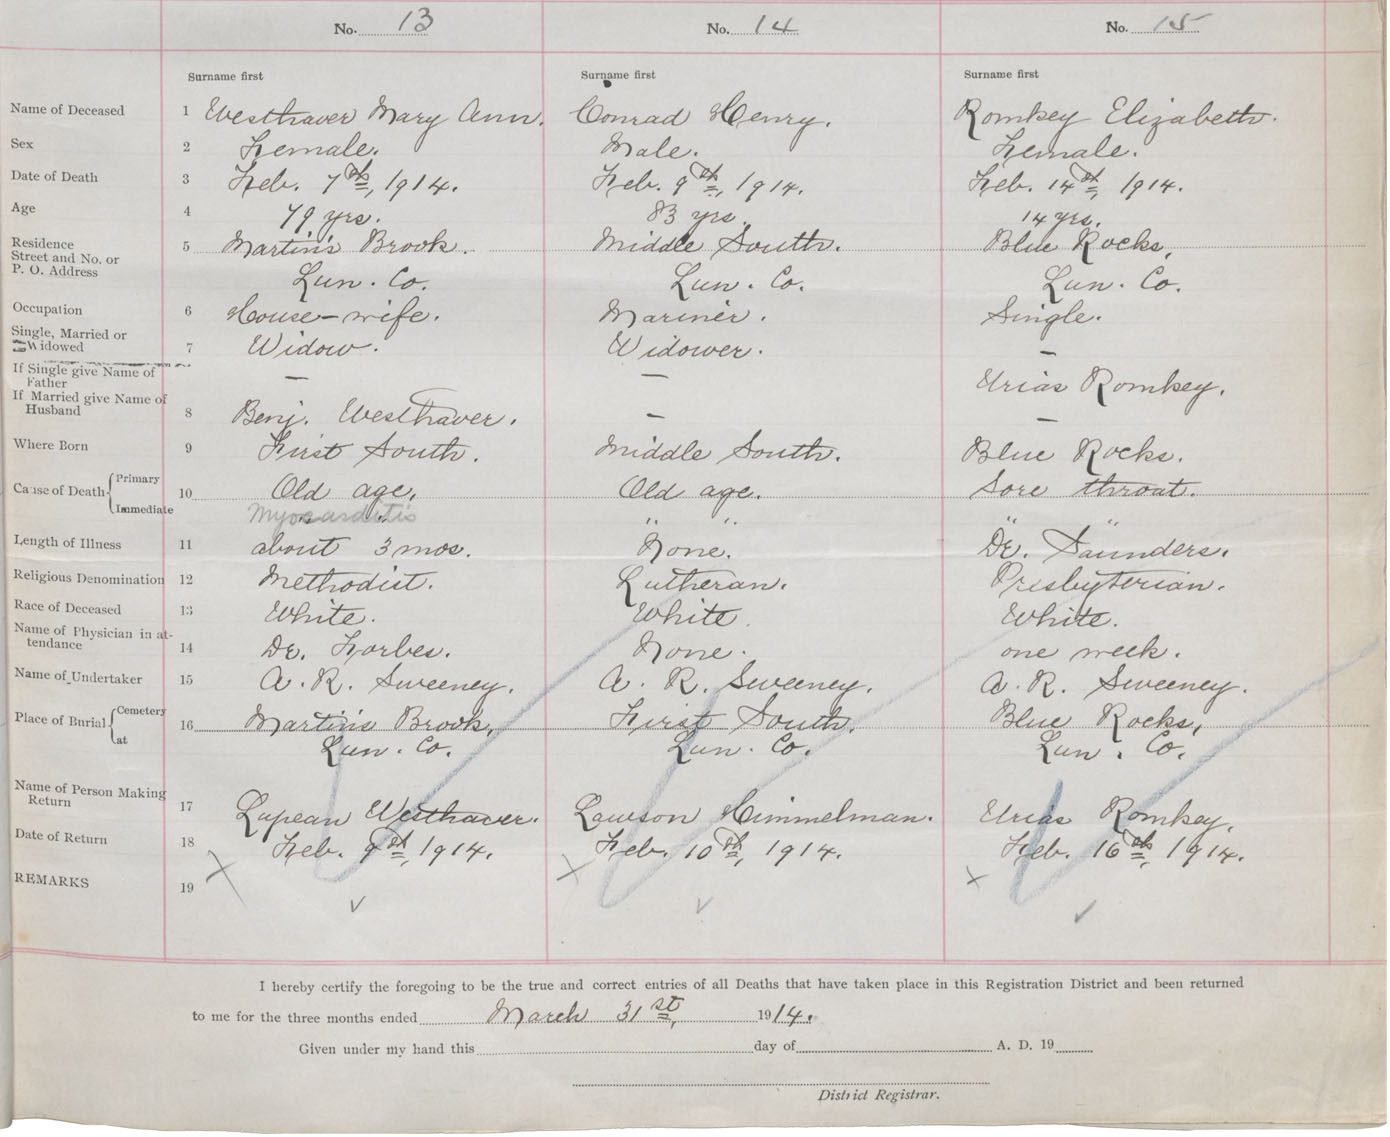 No. 13 No. 14 No. 15
Surname first Surname first Surname first
Name of Deceased 1 Westhaver Mary Ann. Conrad Henry. Romkey Elizabeth.
Sex 2 Female. Male. Female.
Date of Death 3 Feb. 7th, 1914. Feb. 9th, 1914. Feb. 14th, 1914.
Age 4 79 yrs. 83 yrs. 14 yrs.
Residence 5 Martin's Brook. Middle South. Blue Rocks,
Street and No. or
P. O. Address Lun. Co. Lun. Co. Lun. Co.
Occupation 6 House-wife. Mariner. Single.
Single, Married or
Widowed 7 Widow. Widower. –
If Single give Name of
Father – – Urias Romkey.
If Married give Name of
Husband 8 Benj. Westhaver. – –
Where Born 9 First South. Middle South. Blue Rocks.
Cause of Death { Primary 10 Old age, Old age. Sore throat.
Immediate Myocarditis " " " "
Length of Illness 11 about 3 mos. None. Dr. Saunders.
Religious Denomination 12 Methodist. Lutheran. Presbyterian.
Race of Deceased 13 White. White. White.
Name of Physician in at-
tendance 14 Dr. Forbes. None. one week.
Name of Undertaker 15 A. R. Sweeney. A. R. Sweeney. A. R. Sweeney.
Place of Burial { Cemetery 16 Martin's Brook, First South. Blue Rocks,
at Lun. Co. Lun. Co. Lun. Co.
Name of Person Making
Return 17 Lapean Westhaver. Lawson Himmelman. Urias Romkey.
Date of Return 18 Feb. 9th, 1914. Feb. 10th, 1914. Feb. 16th, 1914.
REMARKS 19
I hereby certify the foregoing to be the true and correct entries of all Deaths that have taken place in this Registration District and been returned
to me for the three months ended March 31st, 1914.
Given under my hand this day of A. D. 19
District Registrar.